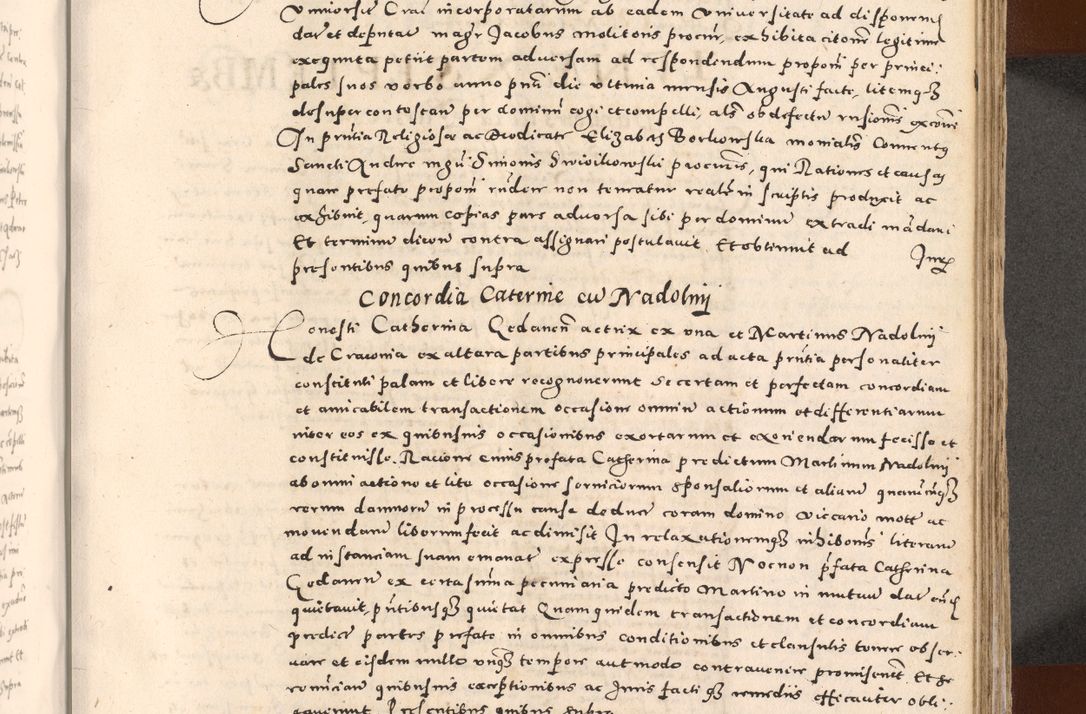 Universit Crac incorporatarum ab eadem Universitate ad disponend
dat et deputat magr Jacobus molitoris procur, exhibita citone legitime
exequuta petiit partem adversam ad respondendum proponi per princi:
pales suos verbo anno pnti die ultima mensis Augusti facte, litemqz
desuper contestan per dominum cogi et compelli, als ob defectu rnsionis excoi
In pntia Religiose ac Deodicate Elizabet Borkowska monialis Conventus
Sancti Andree mgri Simonis procuris, qui Rationes et causas
quare prefato proponi rndere non teneatur realr in scriptis produxit ac
exhibuit, quarum copias pars adversa sibi per dominum extradi mandavi
Et terminum dicen contra assignari postulavit Et obtinuit ad
presentibus quibus supra
Concordia Caterine cu Nadolnij
Honesti Catherina Gedanen actrix ex una et Martinus Nadolnij
de Cracovia ex altera partibus principales ad acta pntia personaliter
constituti palam et libere recognoverunt se certam et perfectam concordiam
et amicabilem transactionem occasione omnium actionum et differentiarum
inter eos ex quibusvis occasionibus exortarum et exoriendarum fecisse et
constituisse. Racione cuius prefata Catherina predictum Martinum Nadolnij
ab omni actione et lite occasione serviciorum sponsaliorum et aliarum quarumcumqz
rerum damnorum in processu cause deduct coram domino vicario mott ac
movendarum liberum fecit ac dimisit In relaxationemqz inhibonis literarum
ad instanciam suam emanat expresse consensit Necnon pfata Catherina
Gedanen ex certa summa pecuniaria predicto Martino in mutuum dat
quietavit, pntibusqz quietat Quamquidem transactionem et concordiam
predict partes prefate in omnibus conditionibus et clausulis tenere obser:
vare et eisdem nullo unqz tempore aut modo contravenire promiserunt Et se
renuncian quibusvis exceptionibus ac Juris facti qz remediis efficaciter obli:
gaverunt Presentibus quibus supra